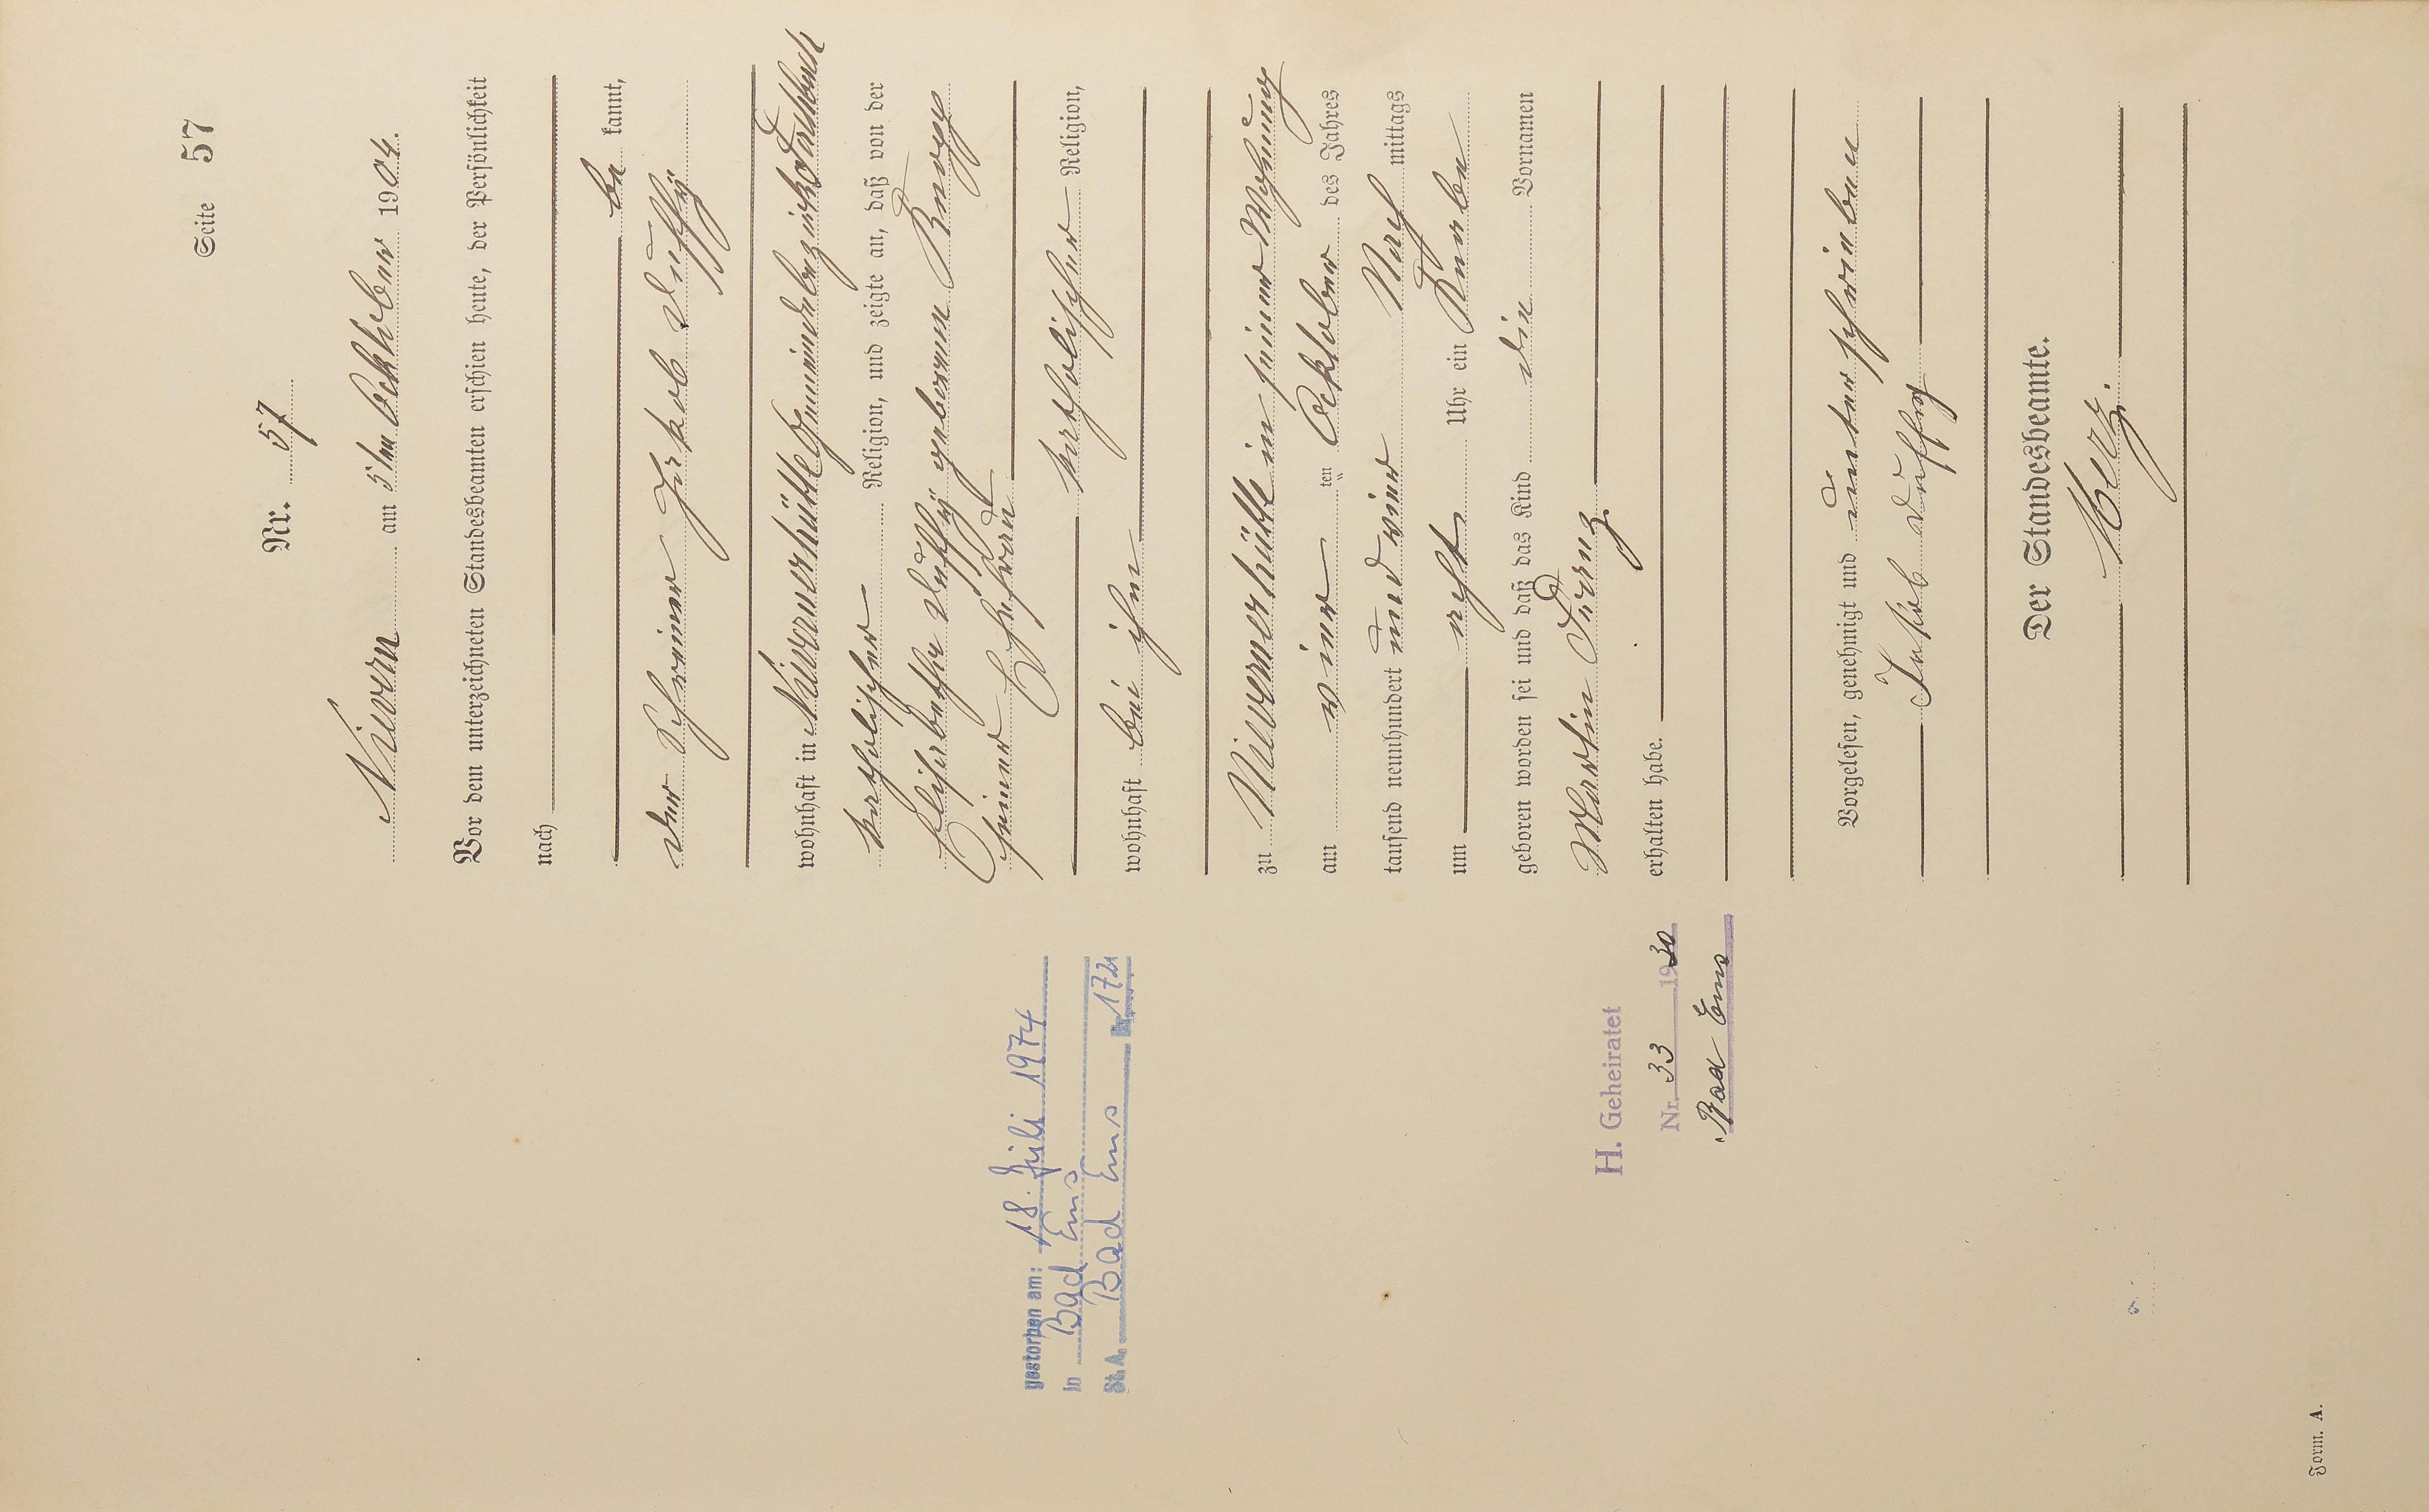 Seite 57
Nr. 57
Nievern am 5ten Ocktober 1904.
Vor dem unterzeichneten Standesbeamten erschien heute, der Persönlichkeit
nach
be kannt,
der Schreiner Jakob Duffÿ
wohnhaft in Nievernerhütte Gemeindebezirks Fachbach
katholischer Religion, und zeigte an, daß von der
Elisabetha Duffÿ geborenen Knopp
seiner Ehefrau
katholischer Religion,
wohnhaft bei ihm
zu Nievernerhütte in seiner Wohnung
am vier ten Ocktober des Jahres
tausend neunhundert und vier Nach mittags
um acht Uhr ein Knabe
geboren worden sei und daß das Kind die Vornamen
Martin Franz
erhalten habe.
Vorgelesen, genehmigt und unterschrieben
Jakob Duffy
Der Standesbeamte.
Herz.
gestorben am: 18. Juli 1974
in Bad Ems
St. A. Bad Ems Nr. 174
H. Geheiratet
Nr. 33 1930
Bad Ems
Form. A.